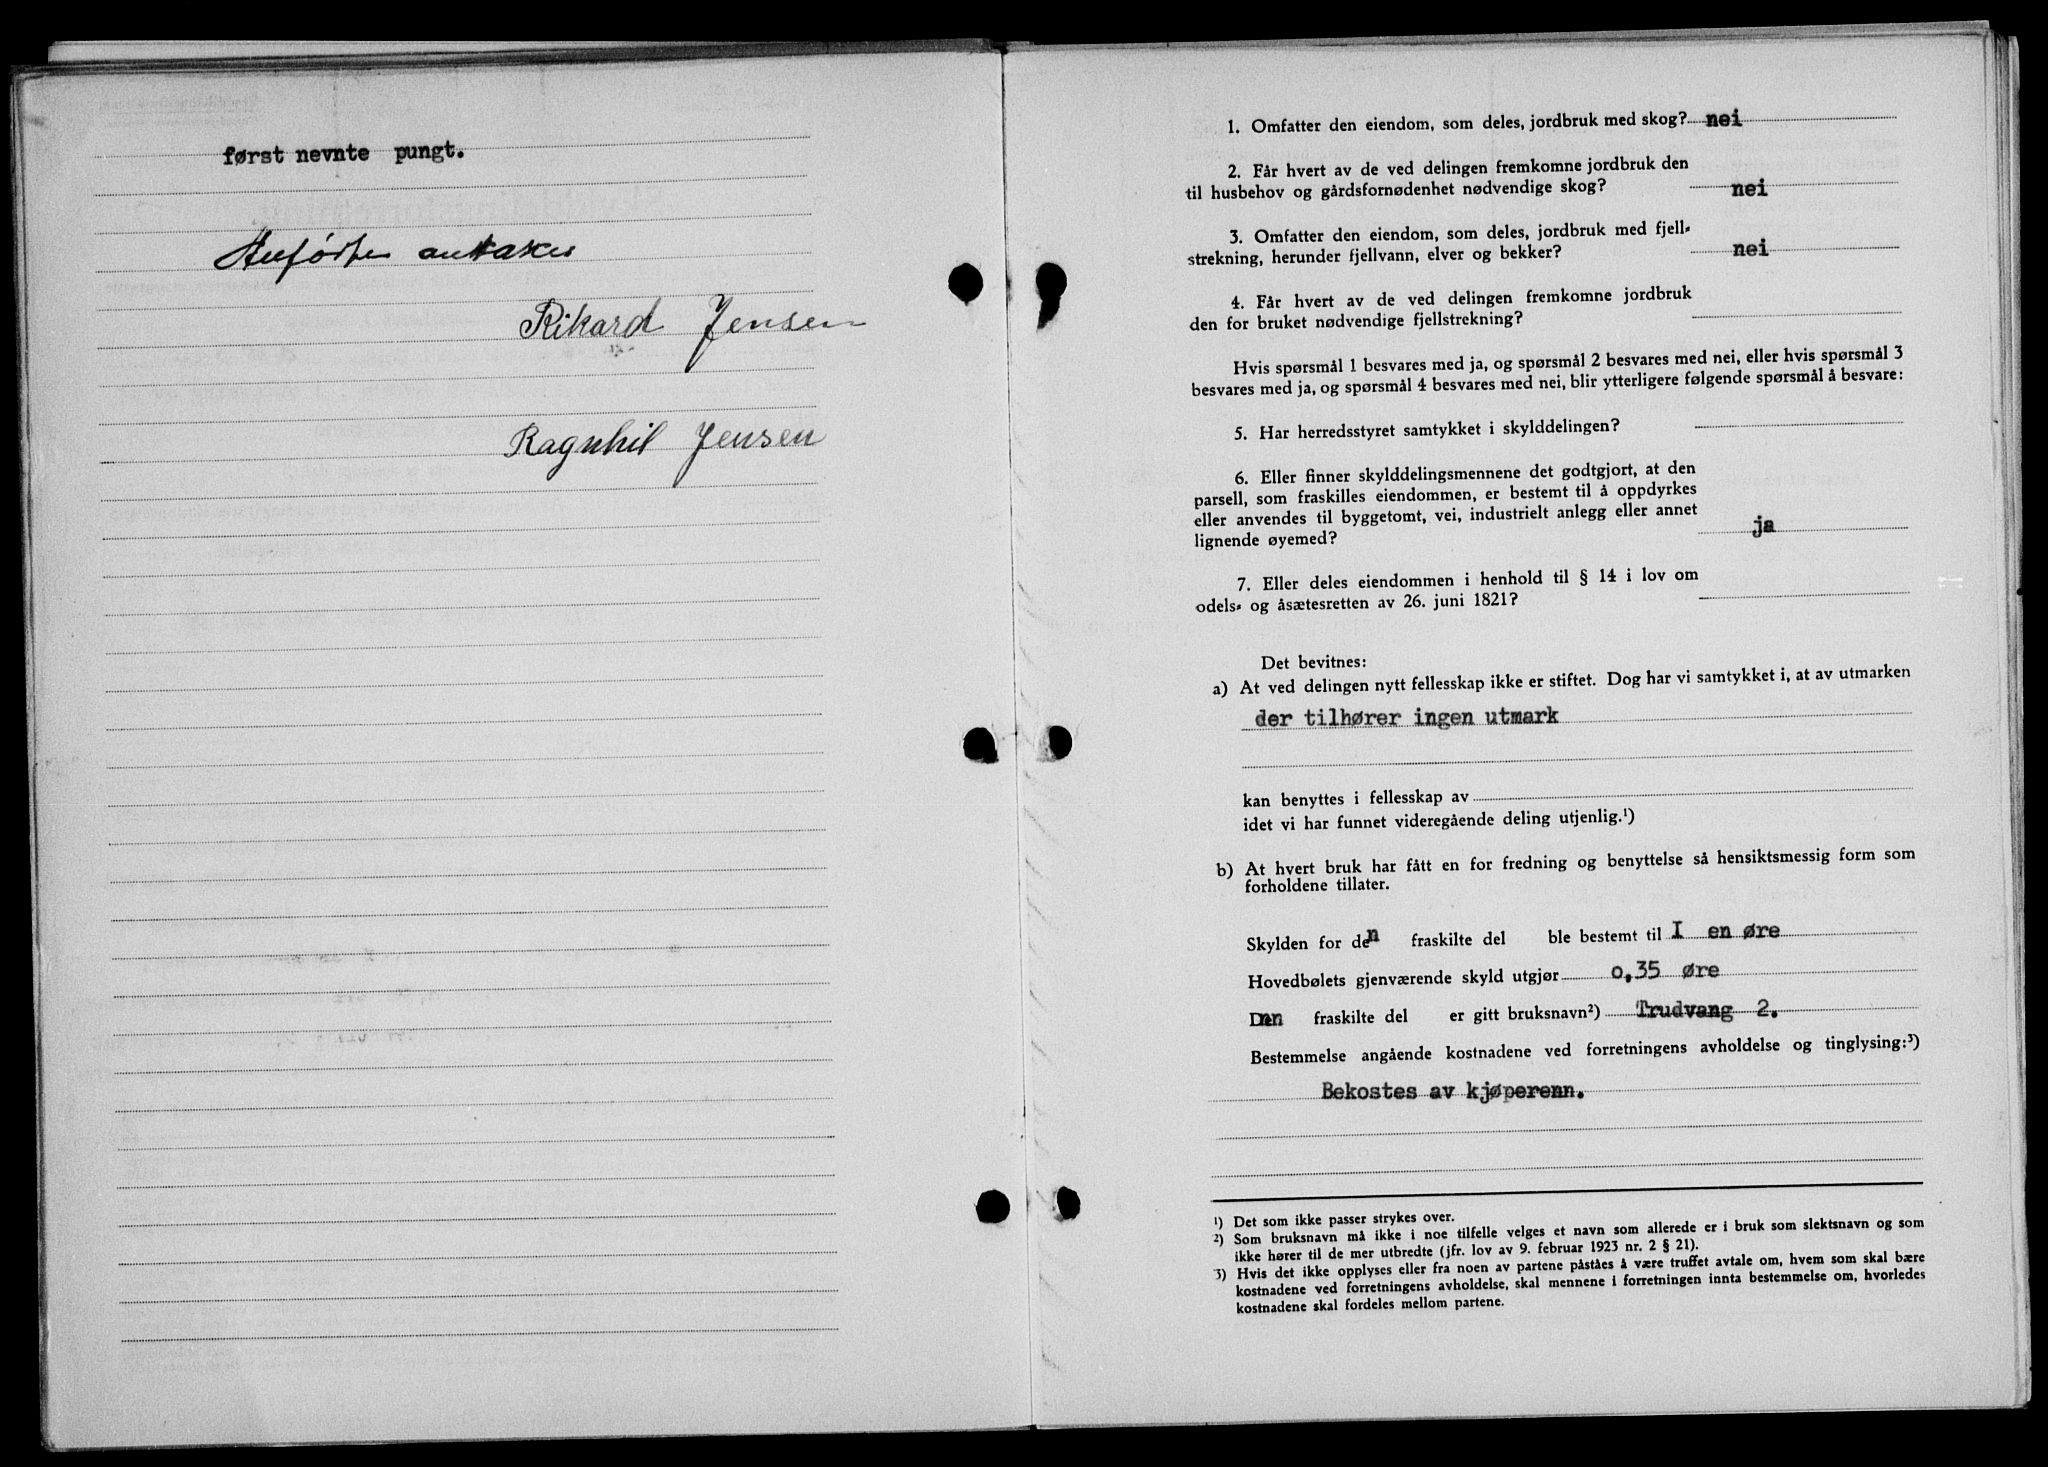 først nevnte pungt.
Anførte anntakes
Rikard Jensen
Ragnhil Jensen
1. Omfatter den eiendom, som deles, jordbruk med skog? nei
2. Får hvert av de ved delingen fremkomne jordbruk den
til husbehov og gårdsfornødenhet nødvendige skog? nei
3. Omfatter den eiendom, som deles, jordbruk med fjell-
strekning, herunder fjellvann, elver og bekker? nei
4. Får hvert av de ved delingen fremkomne jordbruk
den for bruket nødvendige fjellstrekning?
Hvis spørsmål 1 besvares med ja, og spørsmål 2 besvares med nei, eller hvis spørsmål 3
besvares med ja, og spørsmål 4 besvares med nei, blir ytterligere følgende spørsmål å besvare:
5. Har herredsstyret samtykket i skylddelingen?
6. Eller finner skylddelingsmennene det godtgjort, at den
parsell, som fraskilles eiendommen, er bestemt til å oppdyrkes
eller anvendes til byggetomt, vei, industrielt anlegg eller annet
lignende øyemed? ja
7. Eller deles eiendommen i henhold til § 14 i lov om
odels- og åsætesretten av 26. juni 1821?
Det bevitnes:
a) At ved delingen nytt fellesskap ikke er stiftet. Dog har vi samtykket i, at av utmarken
der tilhører ingen utmark
kan benyttes i fellesskap av
idet vi har funnet videregående deling utjenlig.¹)
b) At hvert bruk har fått en for fredning og benyttelse så hensiktsmessig form som
forholdene tillater.
Skylden for den fraskilte del ble bestemt til I en øre
Hovedbølets gjenværende skyld utgjør o,35 øre
Denn fraskilte del er gitt bruksnavn²) Trudvang 2.
Bestemmelse angående kostnadene ved forretningens avholdelse og tinglysing:³)
Bekostes av kjøperenn.
¹) Det som ikke passer strykes over.
²) Som bruksnavn må ikke i noe tilfelle velges et navn som allerede er i bruk som slektsnavn og som
ikke hører til de mer utbredte (jfr. lov av 9. februar 1923 nr. 2 § 21).
³) Hvis det ikke opplyses eller fra noen av partene påståes å være truffet avtale om, hvem som skal bære
kostnadene ved forretningens avholdelse, skal mennene i forretningen innta bestemmelse om, hvorledes
kostnadene skal fordeles mellom partene.